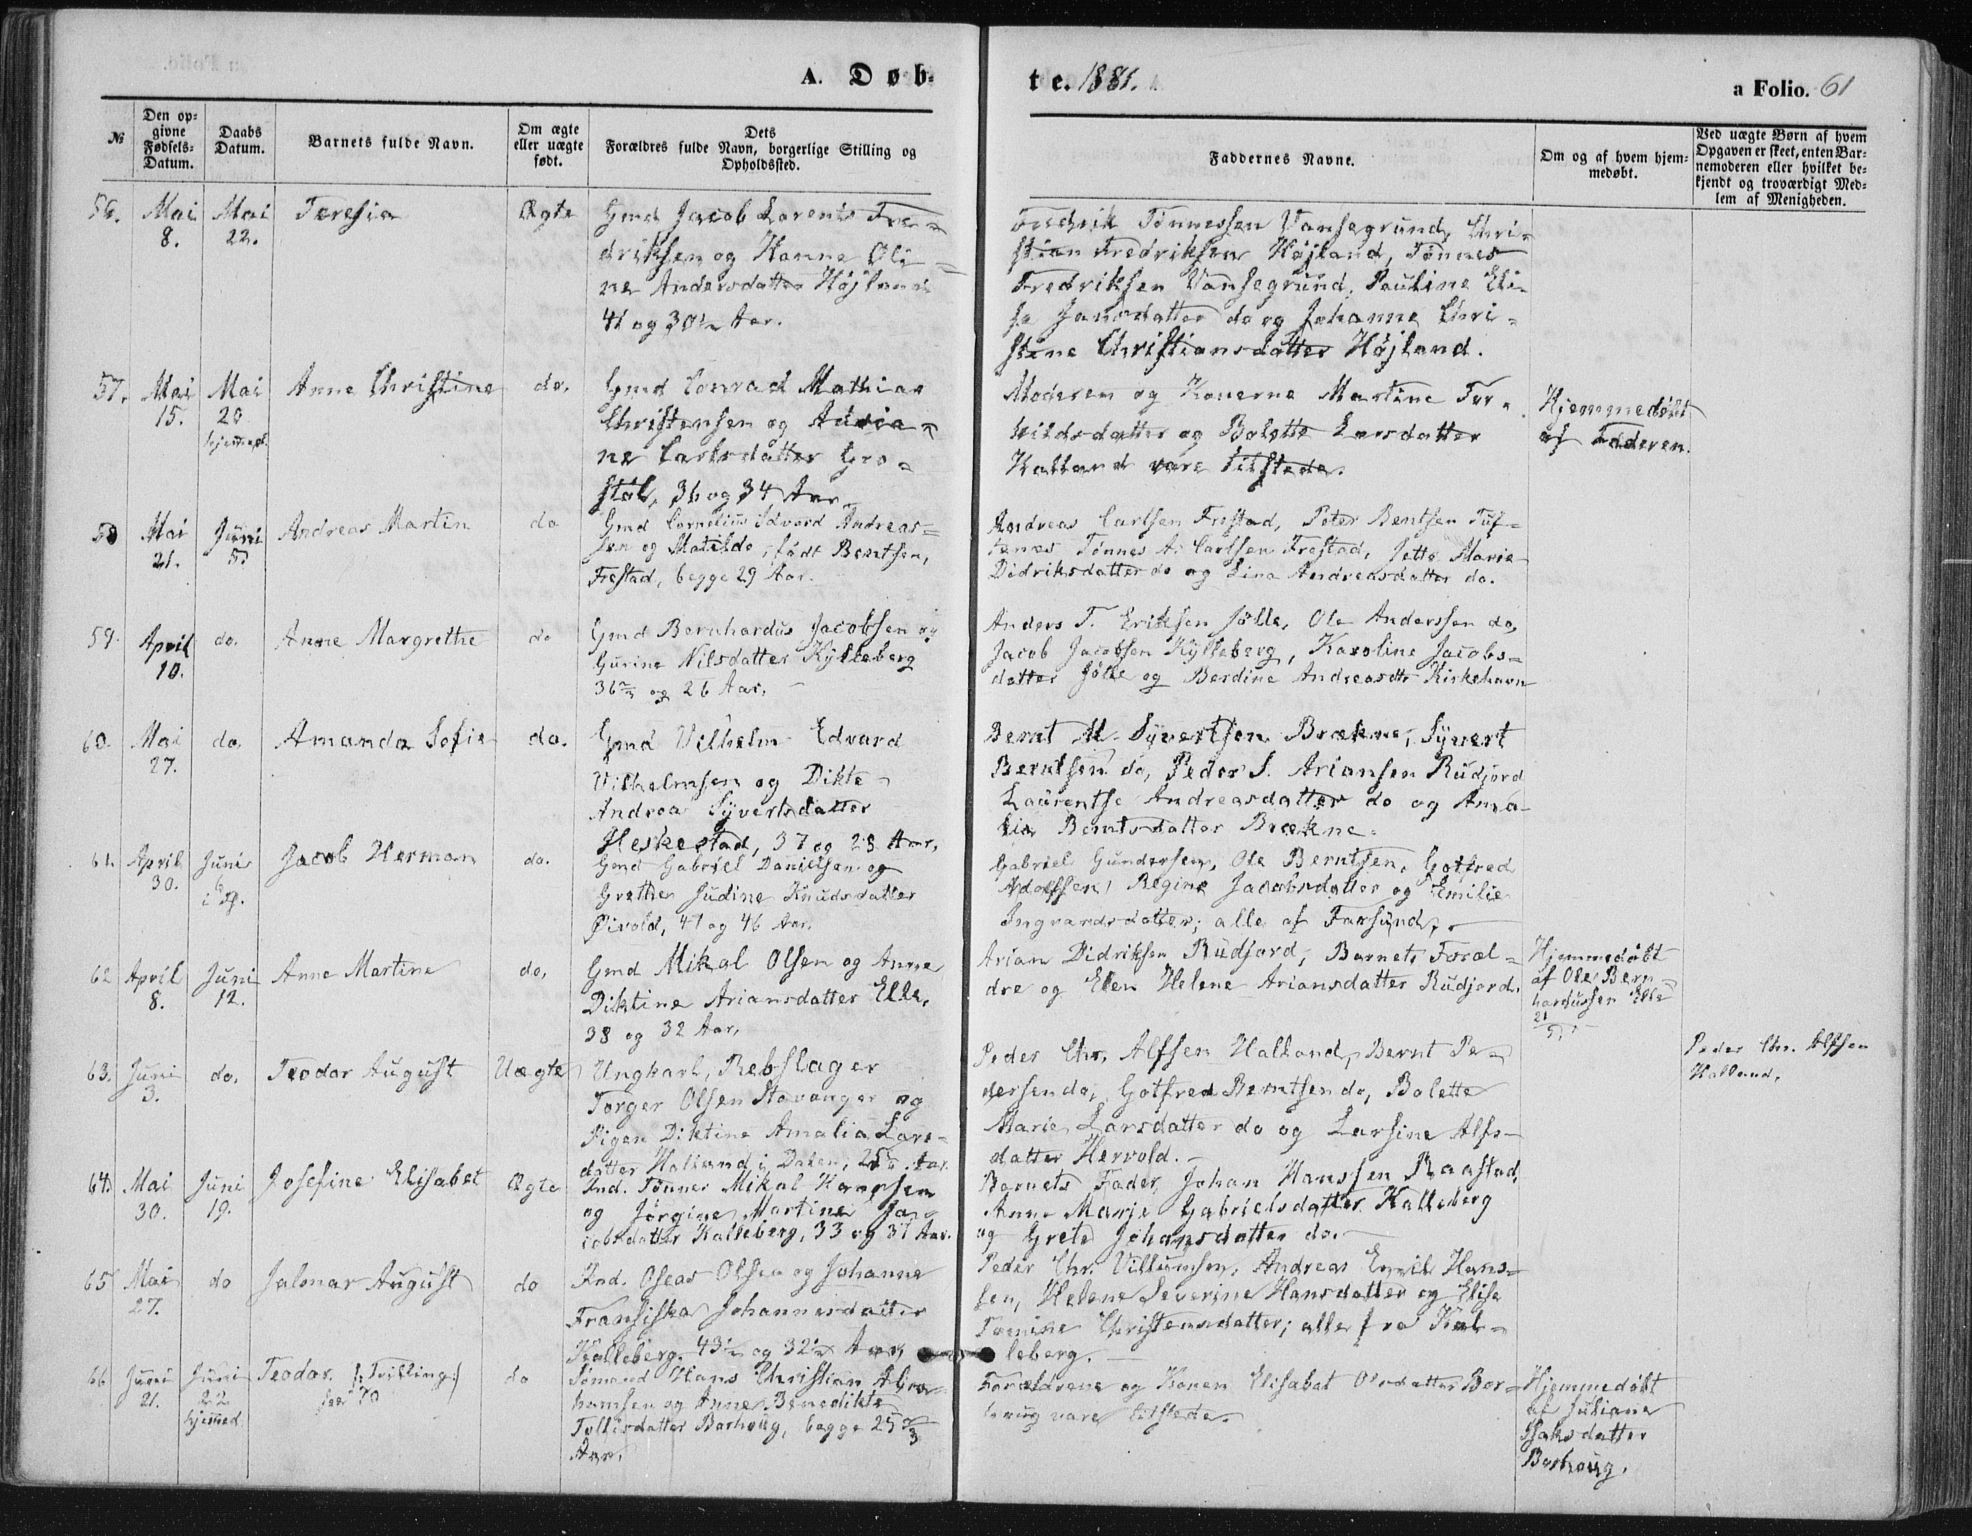 A. Døb-
te. 1881.
a Folio. 61
№
Den op-
givne
Fødsels-
Datum.
Daabs
Datum.
Barnets fulde Navn.
Om ægte
eller uægte
født.
Dets
Forældres fulde Navn, borgerlige Stilling og
Opholdssted.
Faddernes Navne.
Om og af hvem hjem-
medøbt.
Ved uægte Børn af hvem
Opgaven er skeet, enten Bar-
nemoderen eller hvilket be-
kjendt og troværdigt Med-
lem af Menigheden.
56.
Mai
8.
Mai
22.
Teresia
Ægte
Gmd Jacob Lorents Fre-
driksen og Hanne Oli-
ne Andersdatter Højland
41 og 30½ Aar.
Fredrik Tønnessen Vansegrund, Chri-
stian Fredriksen Højland, Tønnes
Fredriksen Vansegrund, Pauline Eli-
se Jansdatter do og Johanne Chri-
stine Christiansdatter Højland.
57.
Mai
15.
Mai
20
hjemmed.
Anne Christine
do.
Gmd Conrad Mathias
Christensen og
ne Carlsdatter Gro-
støl, 36 og 34 Aar.
Moderen og Konerne Martine Ter-
kildsdatter og Bolette Larsdatter
Kalland vare tilstede.
Hjemmedøbt
af Faderen.
58
Mai
21.
Juni
5
Andreas Martin
do
Gmd Cornelius Edvard Andreas-
sen og Matilde, født Bentsen,
Frestad, begge 29 Aar.
Andreas Carlsen Frestad, Peter Bentsen Tuf-
tenes Tønnes A. Carlsen Frestad, Jette Marie
Didriksdatter do og Lina Andreasdatter do.
59.
April
10.
do.
Anne Margrethe
do
Gmd Bernhardus Jacobsen og
Gurine Nilsdatter Kylleberg
36 og 26 Aar.
Anders T. Eriksen Jølle, Ole Anderssen do,
Jacob Jacobsen Kylleberg, Karoline Jacobs-
datter Jølle og Berdine Andreasdtr Kirkehavn
60.
Mai
27.
do.
Amanda Sofie
do.
Gmd Vilhelm Edvard
Vilhelmsen og Dikte
Andrea Syvertsdatter
Heskestad, 37 og 28 Aar.
Bernt M. Syvertsen Brækne, Syvert
Berntsen do, Peder S. Ariansen Rudjord
Laurentse Andreasdatter do og Ama-
lia Berntsdatter Brækne.
61.
April
30.
Juni
6
Jacob Herman
do.
Gmd Gabriel Danielsen og
Grethe Judine Knudsdatter
Øivold, 47 og 46 Aar.
Gabriel Gundersen, Ole Berntsen, Gotfred
Adolfsen, Regine Jacobsdatter og Emilie
Ingvardsdatter; alle af Farsund.
62
April
8.
Juni
12.
Anne Martine
do,
Gmd Mikal Olsen og Anne
Diktine Ariansdatter Elle,
38 og 32 Aar.
Arian Didriksen Rudjord, Barnets Foræl-
dre og Elen Helene Ariansdatter Rudjord.
Hjemmedøbt
af Ole Bern-
hardussen Elle
21
5.
63.
Juni
3.
do.
Teodor August
Uægte
Ungkarl, Rebslager
Torger Olsen Stavanger og
Pigen Diktine Amalia Lars-
datter Halland i Dalen, 25 Aar.
Peder Chr. Alfsen Halland, Bernt Pe-
dersen do, Gotfred Berntsen do, Bolette
Marie Larsdatter do og Larsine Alfs-
datter Hervold.
Peder Chr. Alfsen
Halland.
64.
Mai
30.
Juni
19.
Josefine Elisabet
Ægte
Ind. Tønnes Mikal Hanssen
og Jørgine Martine Ja-
cobsdatter Kalleberg, 33 og 37 Aar.
Barnets Fader, Johan Hanssen Ragstad,
Anne Marie Gabrielsdatter Kalleberg
og Grete Johansdatter do.
65
Mai
27.
do
Jalmar August
do
Ind. Oseas Olsen og Johanne
Fransiska Johannesdatter
Kalleberg, 43½ og 32½ Aar.
Peder Chr. Villumsen, Andreas Emil Hans-
sen, Helene Severine Hansdatter og Elise
Tomine Christensdatter; alle fra Kal-
leberg.
66
Juni
21.
Juni
22
hjemmed.
Teodor. (: Tvilling :)
see 70
do
Sømand Hans Christian Abra-
hamsen og Anne Benedikte
Tollisdatter Borhoug, begge 25⅔
Aar.
Forældrene og Konen Elisabet Olsdatter Bor-
houg vare tilstede.
Hjemmedøbt
af Juliane
Isaksdatter
Borhoug.